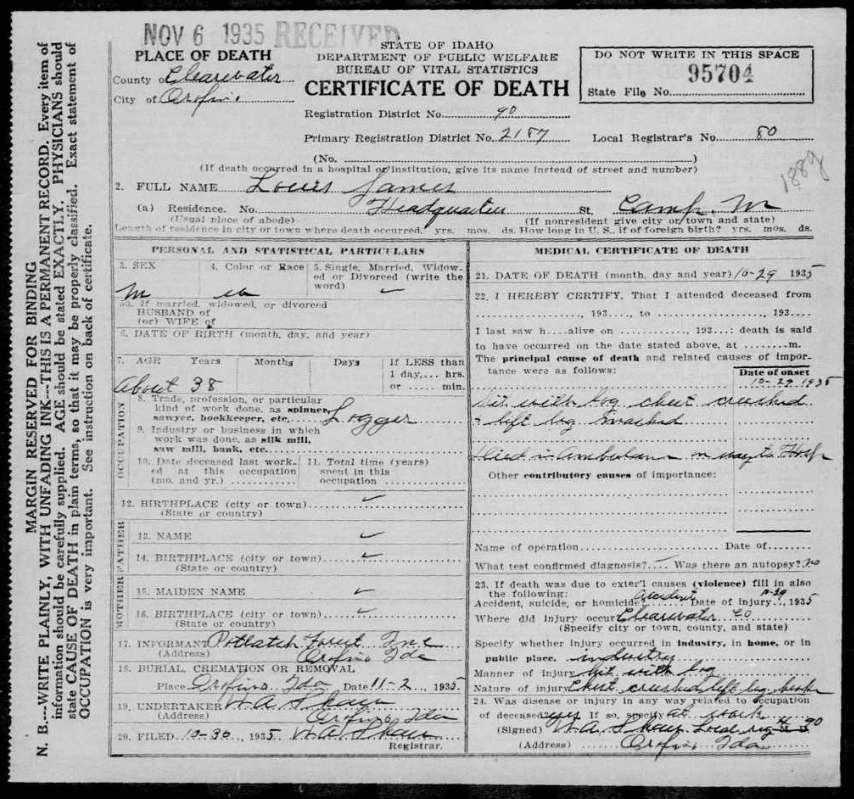 NOV 6 1935 RECEIVED
STATE OF IDAHO
DEPARTMENT OF PUBLIC WELFARE
BUREAU OF VITAL STATISTICS
CERTIFICATE OF DEATH
PLACE OF DEATH
County of Clearwater
City of Orofino
DO NOT WRITE IN THIS SPACE
95704
State File No.
Registration District No. 90
Primary Registration District No. 2187 Local Registrar's No. 80
(No. )
(If death occurred in a hospital or institution, give its name instead of street and number)
1889
2. FULL NAME Louis James
(a) Residence. No. Headquarters St. Camp
(Usual place of abode) (If nonresident give city or town and state)
Length of residence in city or town where death occurred, yrs. mos. ds. How long in U. S., if of foreign birth? yrs. mos. ds.
PERSONAL AND STATISTICAL PARTICULARS
3. SEX 4. Color or Race 5. Single, Married, Widowed or Divorced (write the word)
M
5a. If married, widowed, or divorced
HUSBAND of
(or) WIFE of
6. DATE OF BIRTH (month, day, and year)
7. AGE Years Months Days If LESS than
1 day,.... hrs.
or .... min.
About 38
OCCUPATION
8. Trade, profession, or particular
kind of work done, as spinner,
sawyer, bookkeeper, etc. Logger
9. Industry or business in which
work was done, as silk mill,
saw mill, bank, etc.
10. Date deceased last worked at this occupation (mo. and yr.)
11. Total time (years) spent in this occupation
12. BIRTHPLACE (city or town)
(State or country)
FATHER
13. NAME
14. BIRTHPLACE (city or town)
(State or country)
MOTHER
15. MAIDEN NAME
16. BIRTHPLACE (city or town)
(State or country)
17. INFORMANT Potlatch Forest Inc
(Address) Orofino Ida
18. BURIAL, CREMATION OR REMOVAL
Place Orofino Ida Date 11-2, 1935
19. UNDERTAKER W. A. Shaw
(Address) Orofino Idan
20. FILED 10-30, 1935 W. A. Shaw
Registrar.
MEDICAL CERTIFICATE OF DEATH
21. DATE OF DEATH (month, day and year) 10-29 1935
22. I HEREBY CERTIFY, That I attended deceased from
, 193...., to , 193....
I last saw h....alive on , 193... death is said
to have occurred on the date stated above, at ........m.
The principal cause of death and related causes of importance were as follows:
Date of onset
10-29 1935
Hit with log chest crushed
& left leg smashed
Died in Ambulance on way to Hosp
Other contributory causes of importance:
Name of operation Date of
What test confirmed diagnosis?.... Was there an autopsy? no
23. If death was due to exter'l causes (violence) fill in also
the following:
Accident, suicide, or homicide? Accident Date of injury 10-29, 1935
Where did injury occur Clearwater Co
(Specify city or town, county, and state)
Specify whether injury occurred in industry, in home, or in
public place. industry
Manner of injury hit with log
Nature of injury Chest crushed left leg broken
24. Was disease or injury in any way related to occupation
of deceased yes If so, specify at work
(Signed) W. A. Shaw Local reg 90
(Address) Orofino Ida
MARGIN RESERVED FOR BINDING
N. B.---WRITE PLAINLY, WITH UNFADING INK---THIS IS A PERMANENT RECORD. Every item of
information should be carefully supplied. AGE should be stated EXACTLY. PHYSICIANS should
state CAUSE OF DEATH in plain terms, so that it may be properly classified. Exact statement of
OCCUPATION is very important. See instruction on back of certificate.